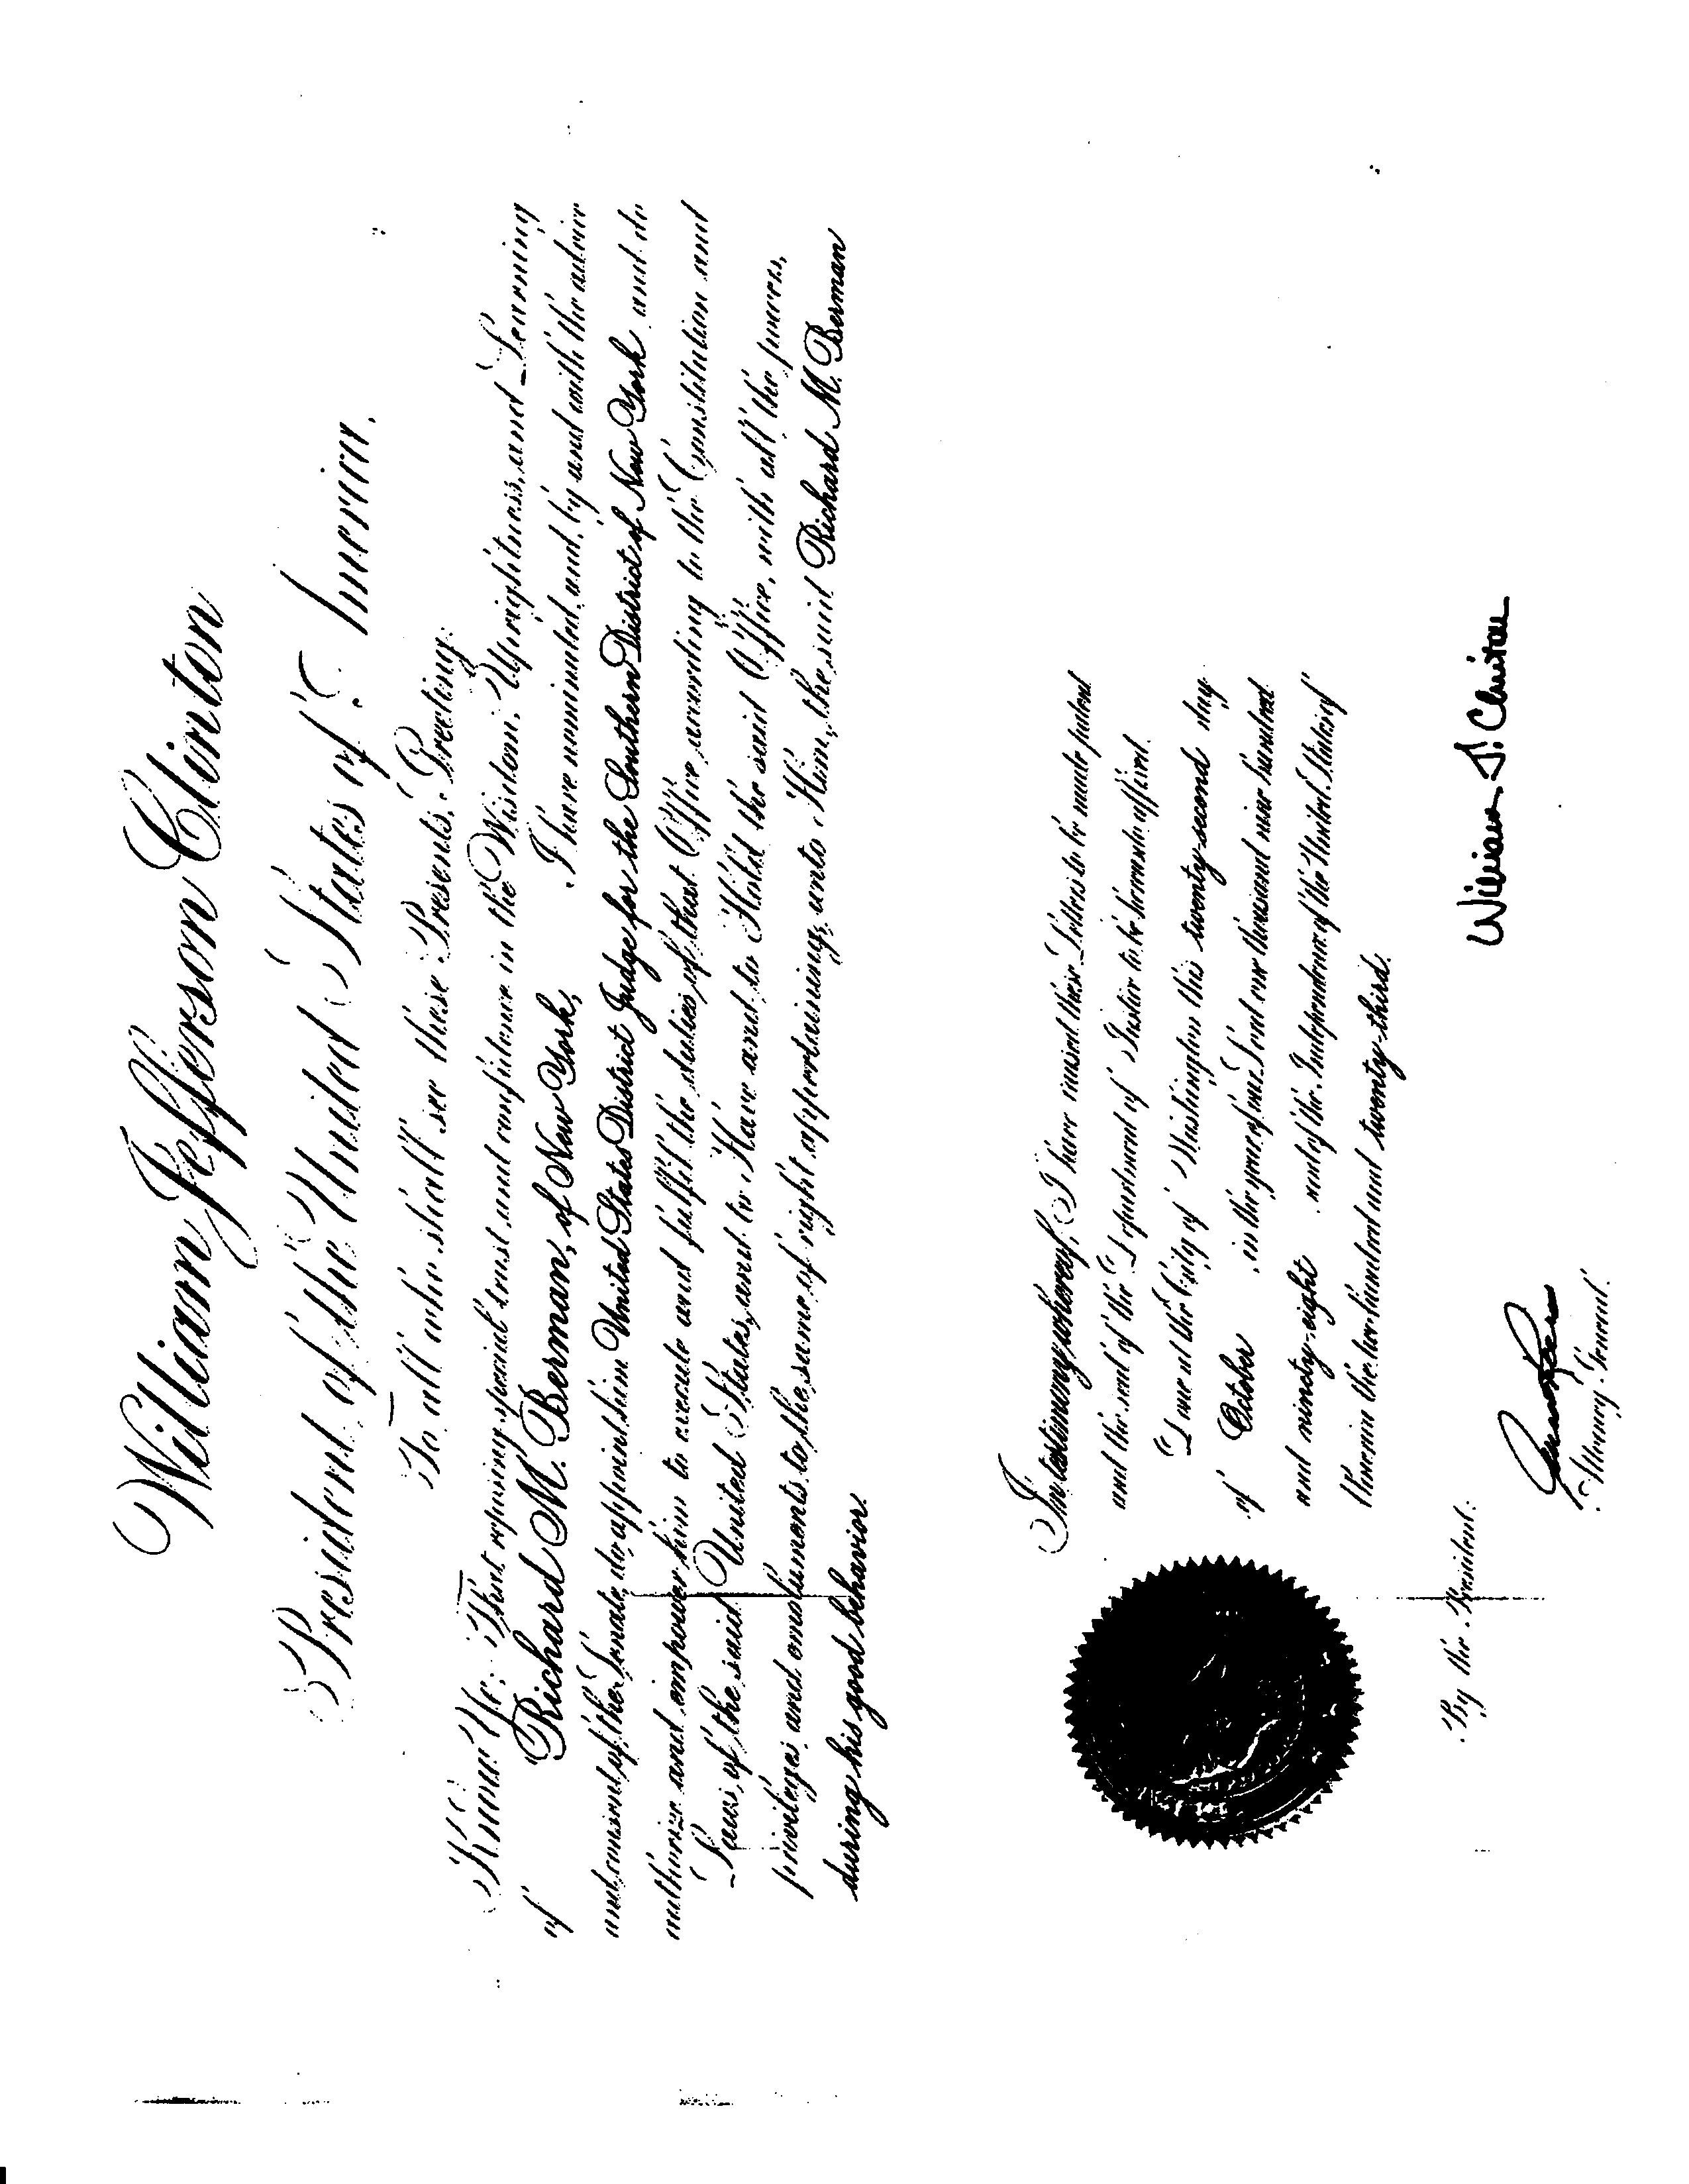 William Jefferson Clinton
President of the United States of America.
To all who shall see these Presents, Greeting:
Know Ye; That reposing special trust and confidence in the Wisdom, Uprightness, and Learning
of Richard M. Berman, of New York, I have nominated, and, by and with the advice
and consent of the Senate, do appoint him United States District Judge for the Southern District of New York and do
authorize and empower him to execute and fulfil the duties of that Office according to the Constitution and
Laws of the said United States, and to Have and to Hold the said Office, with all the powers,
privileges and emoluments to the same of right appertaining, unto Him, the said Richard M. Berman
during his good behavior.
In testimony whereof, I have caused these Letters to be made patent
and the seal of the Department of Justice to be hereunto affixed.
Done at the City of Washington this twenty-second day
of October in the year of our Lord one thousand nine hundred
and ninety-eight and of the Independence of the United States of
America the two hundred and twenty-third.
William J. Clinton
By the President:
Janet Reno
Attorney General.